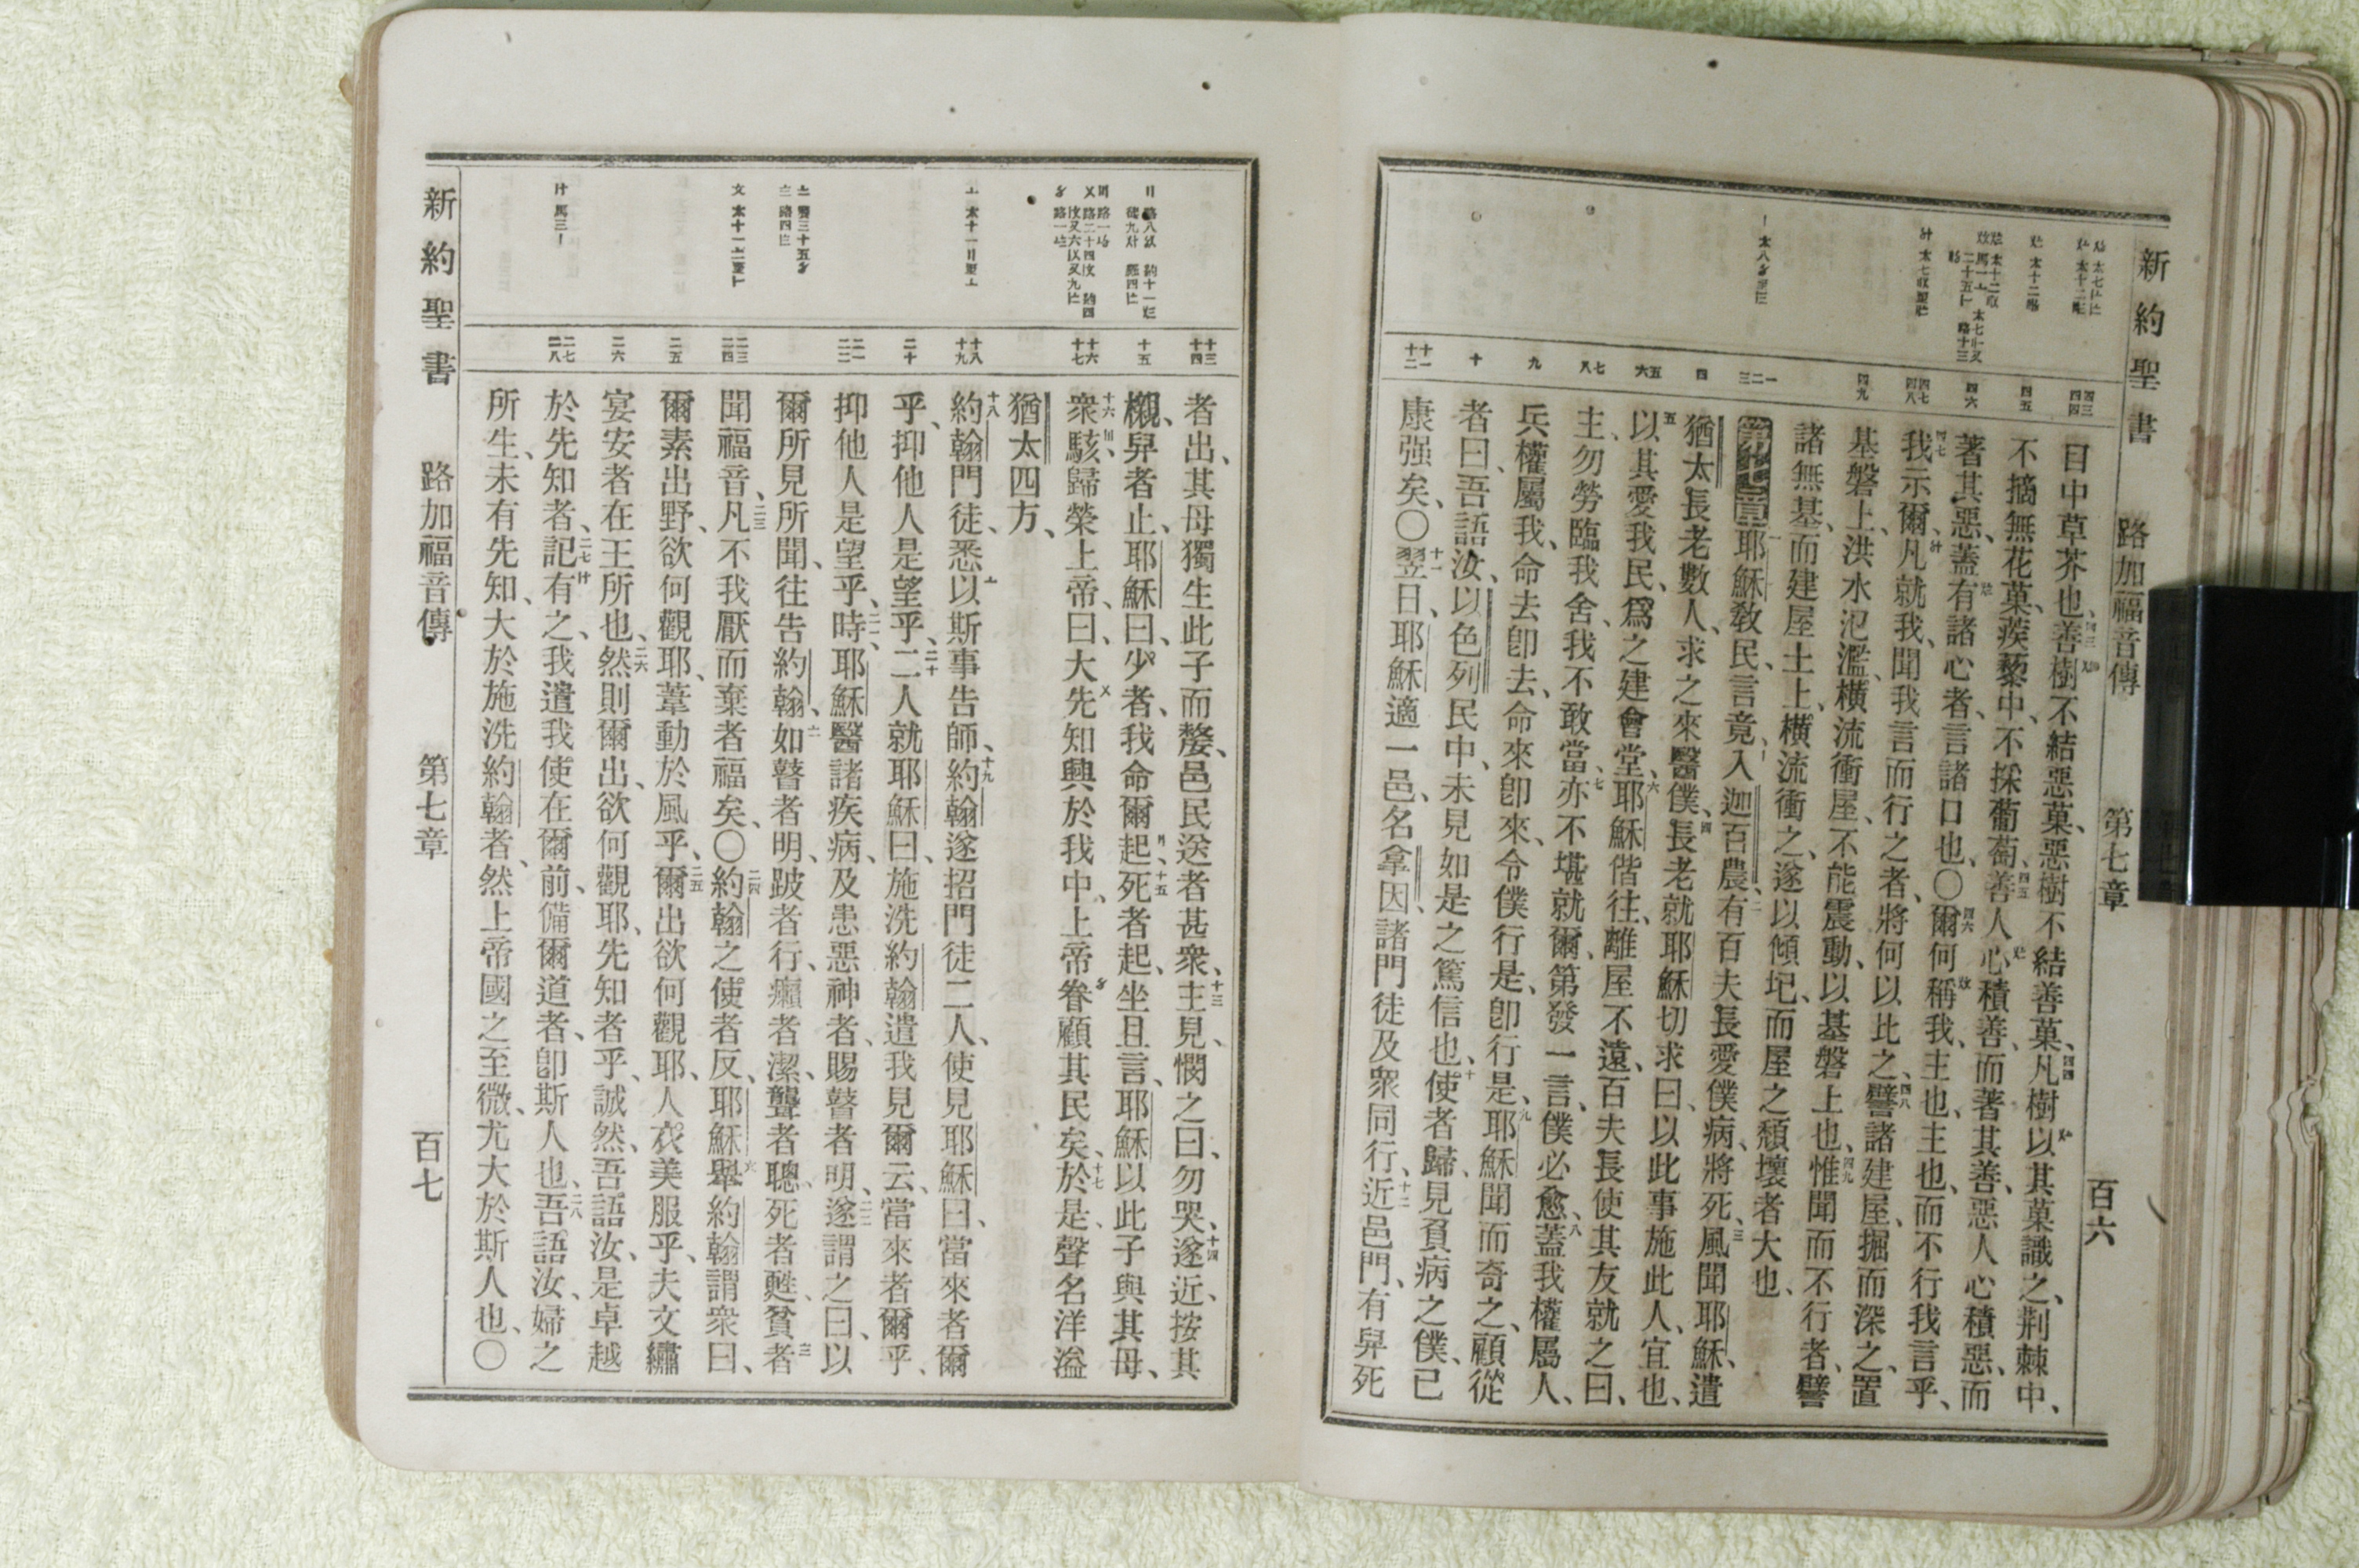 新約聖書 路加福音傳 第七章 百六
目中草芥也、善樹不結惡菓、惡樹不結善菓、凡樹以其菓識之、荆棘中、
不摘無花菓、蒺藜中、不採葡萄、善人心積善、而著其善、惡人心積惡、而
著其惡、蓋有諸心者、言諸口也、〇爾何稱我、主也、主也、而不行我言乎、
我示爾、凡就我、聞我言而行之者、將何以比之、譬諸建屋、掘而深之、置
基磐上、洪水氾濫、橫流衝屋、不能震動、以基磐上也、惟聞而不行者、譬
諸無基、而建屋土上、橫流衝之、遂以傾圮、而屋之頹壞者大也、
第七章 耶穌敎民、言竟、入迦百農、有百夫長愛僕病、將死、風聞耶穌、遣
猶太長老數人、求之來醫僕、長老就耶穌切求曰、以此事施此人、宜也、
以其愛我民、爲之建會堂、耶穌偕往、離屋不遠、百夫長使其友就之曰、
主、勿勞臨我舍、我不敢當、亦不堪就爾、第發一言、僕必愈、蓋我權屬人、
兵權屬我、命去卽去、命來卽來、令僕行是、卽行是、耶穌聞而奇之、顧從
者曰、吾語汝、以色列民中、未見如是之篤信也、使者歸、見負病之僕、已
康强矣、〇翌日、耶穌適一邑、名拿因、諸門徒及衆同行、近邑門、有舁死
十三 十四 十五 十六 十七 十八 十九 二十 二一 二二 二三 二四 二五 二六 二七 二八
者出、其母獨生此子而嫠、邑民送者甚衆、主見、憫之曰、勿哭、遂近、按其
櫬、舁者止、耶穌曰、少者、我命爾起、死者起、坐且言、耶穌以此子與其母、
衆駭、歸榮上帝、曰、大先知興於我中、上帝眷顧其民矣、於是、聲名洋溢
猶太四方、
約翰門徒、悉以斯事告師、約翰遂招門徒二人、使見耶穌曰、當來者爾
乎、抑他人是望乎、二人就耶穌曰、施洗約翰遣我見爾云、當來者爾乎、
抑他人是望乎、時、耶穌醫諸疾病、及患惡神者、賜瞽者明、遂謂之曰、以
爾所見所聞、往告約翰、如瞽者明、跛者行、癩者潔、聾者聰、死者甦、貧者
聞福音、凡不我厭而棄者福矣、〇約翰之使者反、耶穌舉約翰謂衆曰、
爾素出野、欲何觀耶、葦動於風乎、爾出欲何觀耶、人衣美服乎、夫文繡
宴安者在王所也、然則爾出、欲何觀耶、先知者乎、誠然、吾語汝、是卓越
於先知者、記有之、我遣我使在爾前、備爾道者、卽斯人也、吾語汝、婦之
所生、未有先知、大於施洗約翰者、然上帝國之至微、尤大於斯人也、〇
新約聖書 路加福音傳 第七章 百七